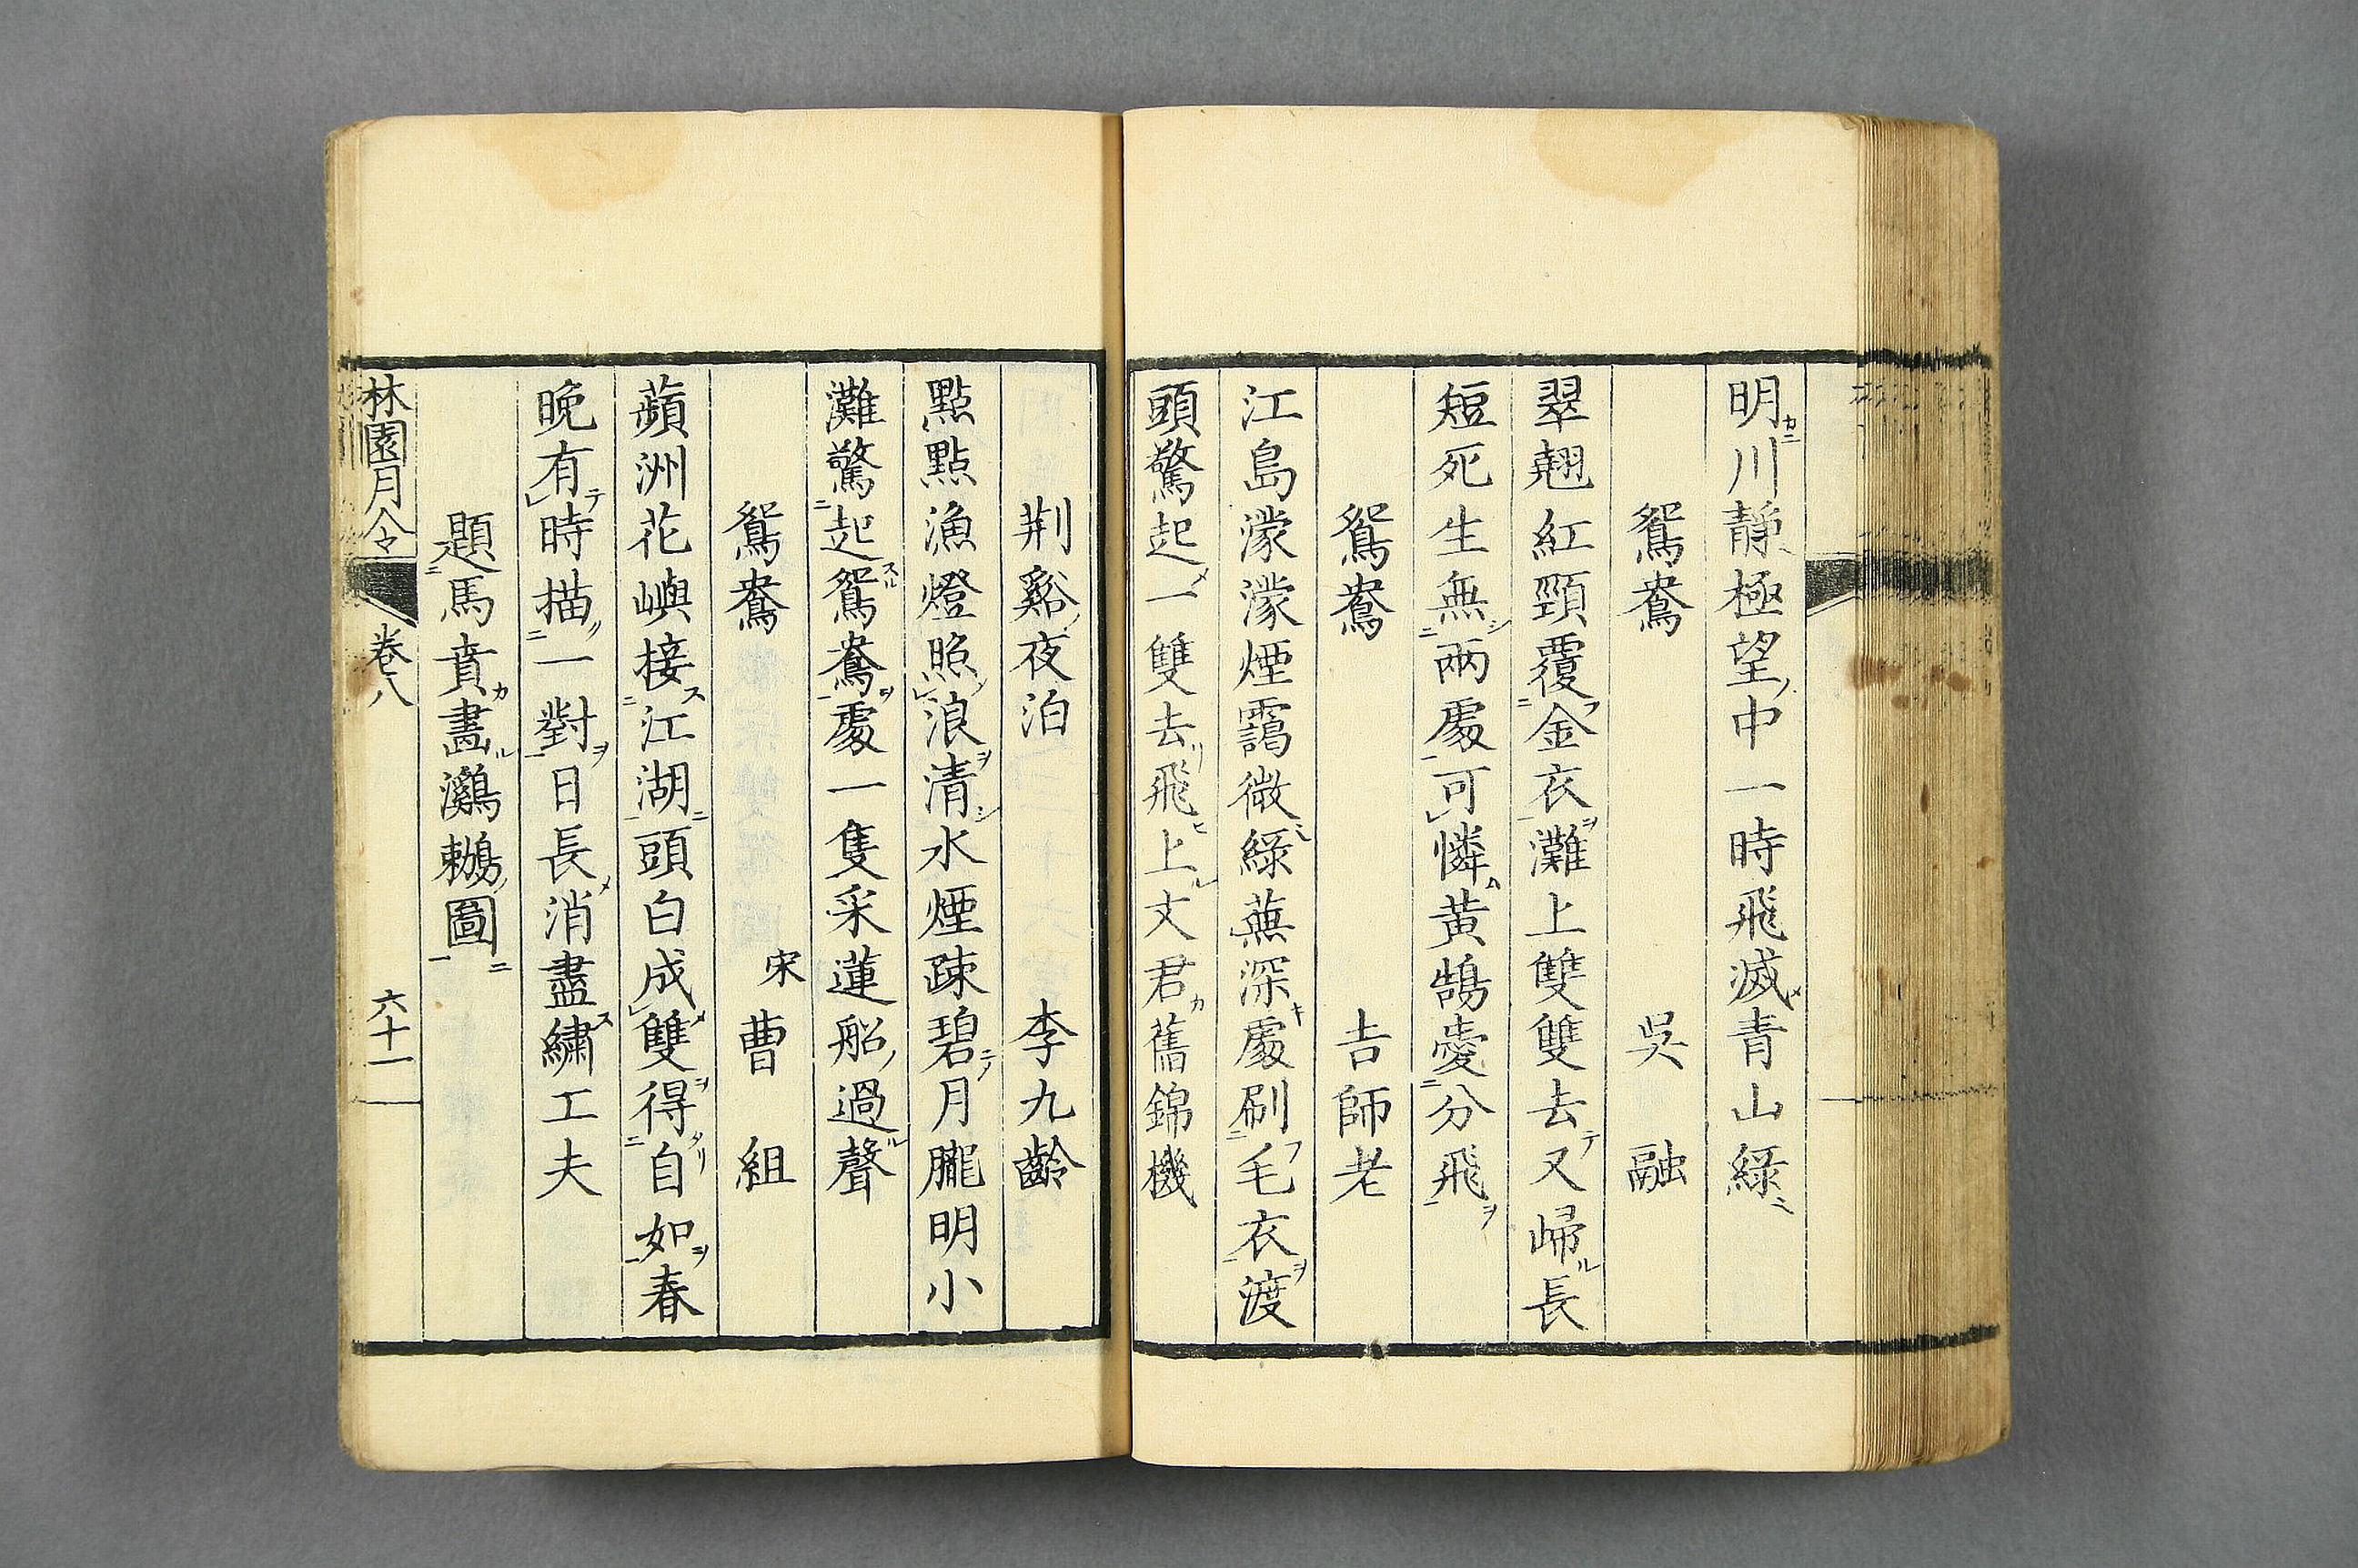 明川靜極望中一時飛滅青山綠
鴛鴦 吳融
翠翹紅頸覆金衣灘上雙雙去又歸長
短死生無兩處可憐黃鵠愛分飛
鴛鴦 吉師老
江島濛濛煙靄微綠蕪深處刷毛衣渡
頭驚起一雙去飛上文君舊錦機
荆谿夜泊 李九齡
點點漁燈照浪清水煙疎碧月朧明小
灘驚起鴛鴦處一隻采蓮船過聲
鴛鴦 宋 曹組
蘋洲花嶼接江湖頭白成雙得自如春
晚有時描一對日長消盡繡工夫
題馬賁畫鸂鷘圖
林園月令 卷八 六十一